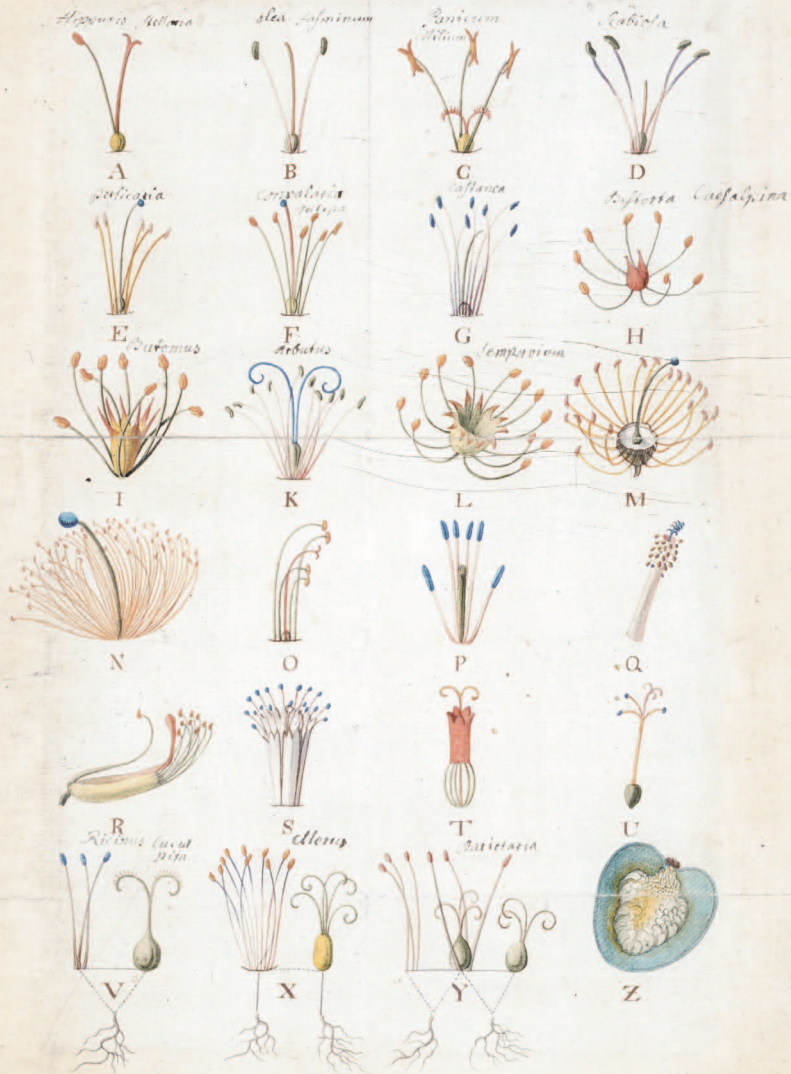 Olea Jasminum
Panicum
Milium
Scabiosa
A
B
C
D
Persicaria
Convalaria
Castanea
Bistorta Caesalpina
E
F
G
H
Butomus
Arbutus
Sempervivum
I
K
L
M
N
O
P
Q
R
S
T
U
Ricinus Cucur
bita
Morus
Parietaria
V
X
Y
Z